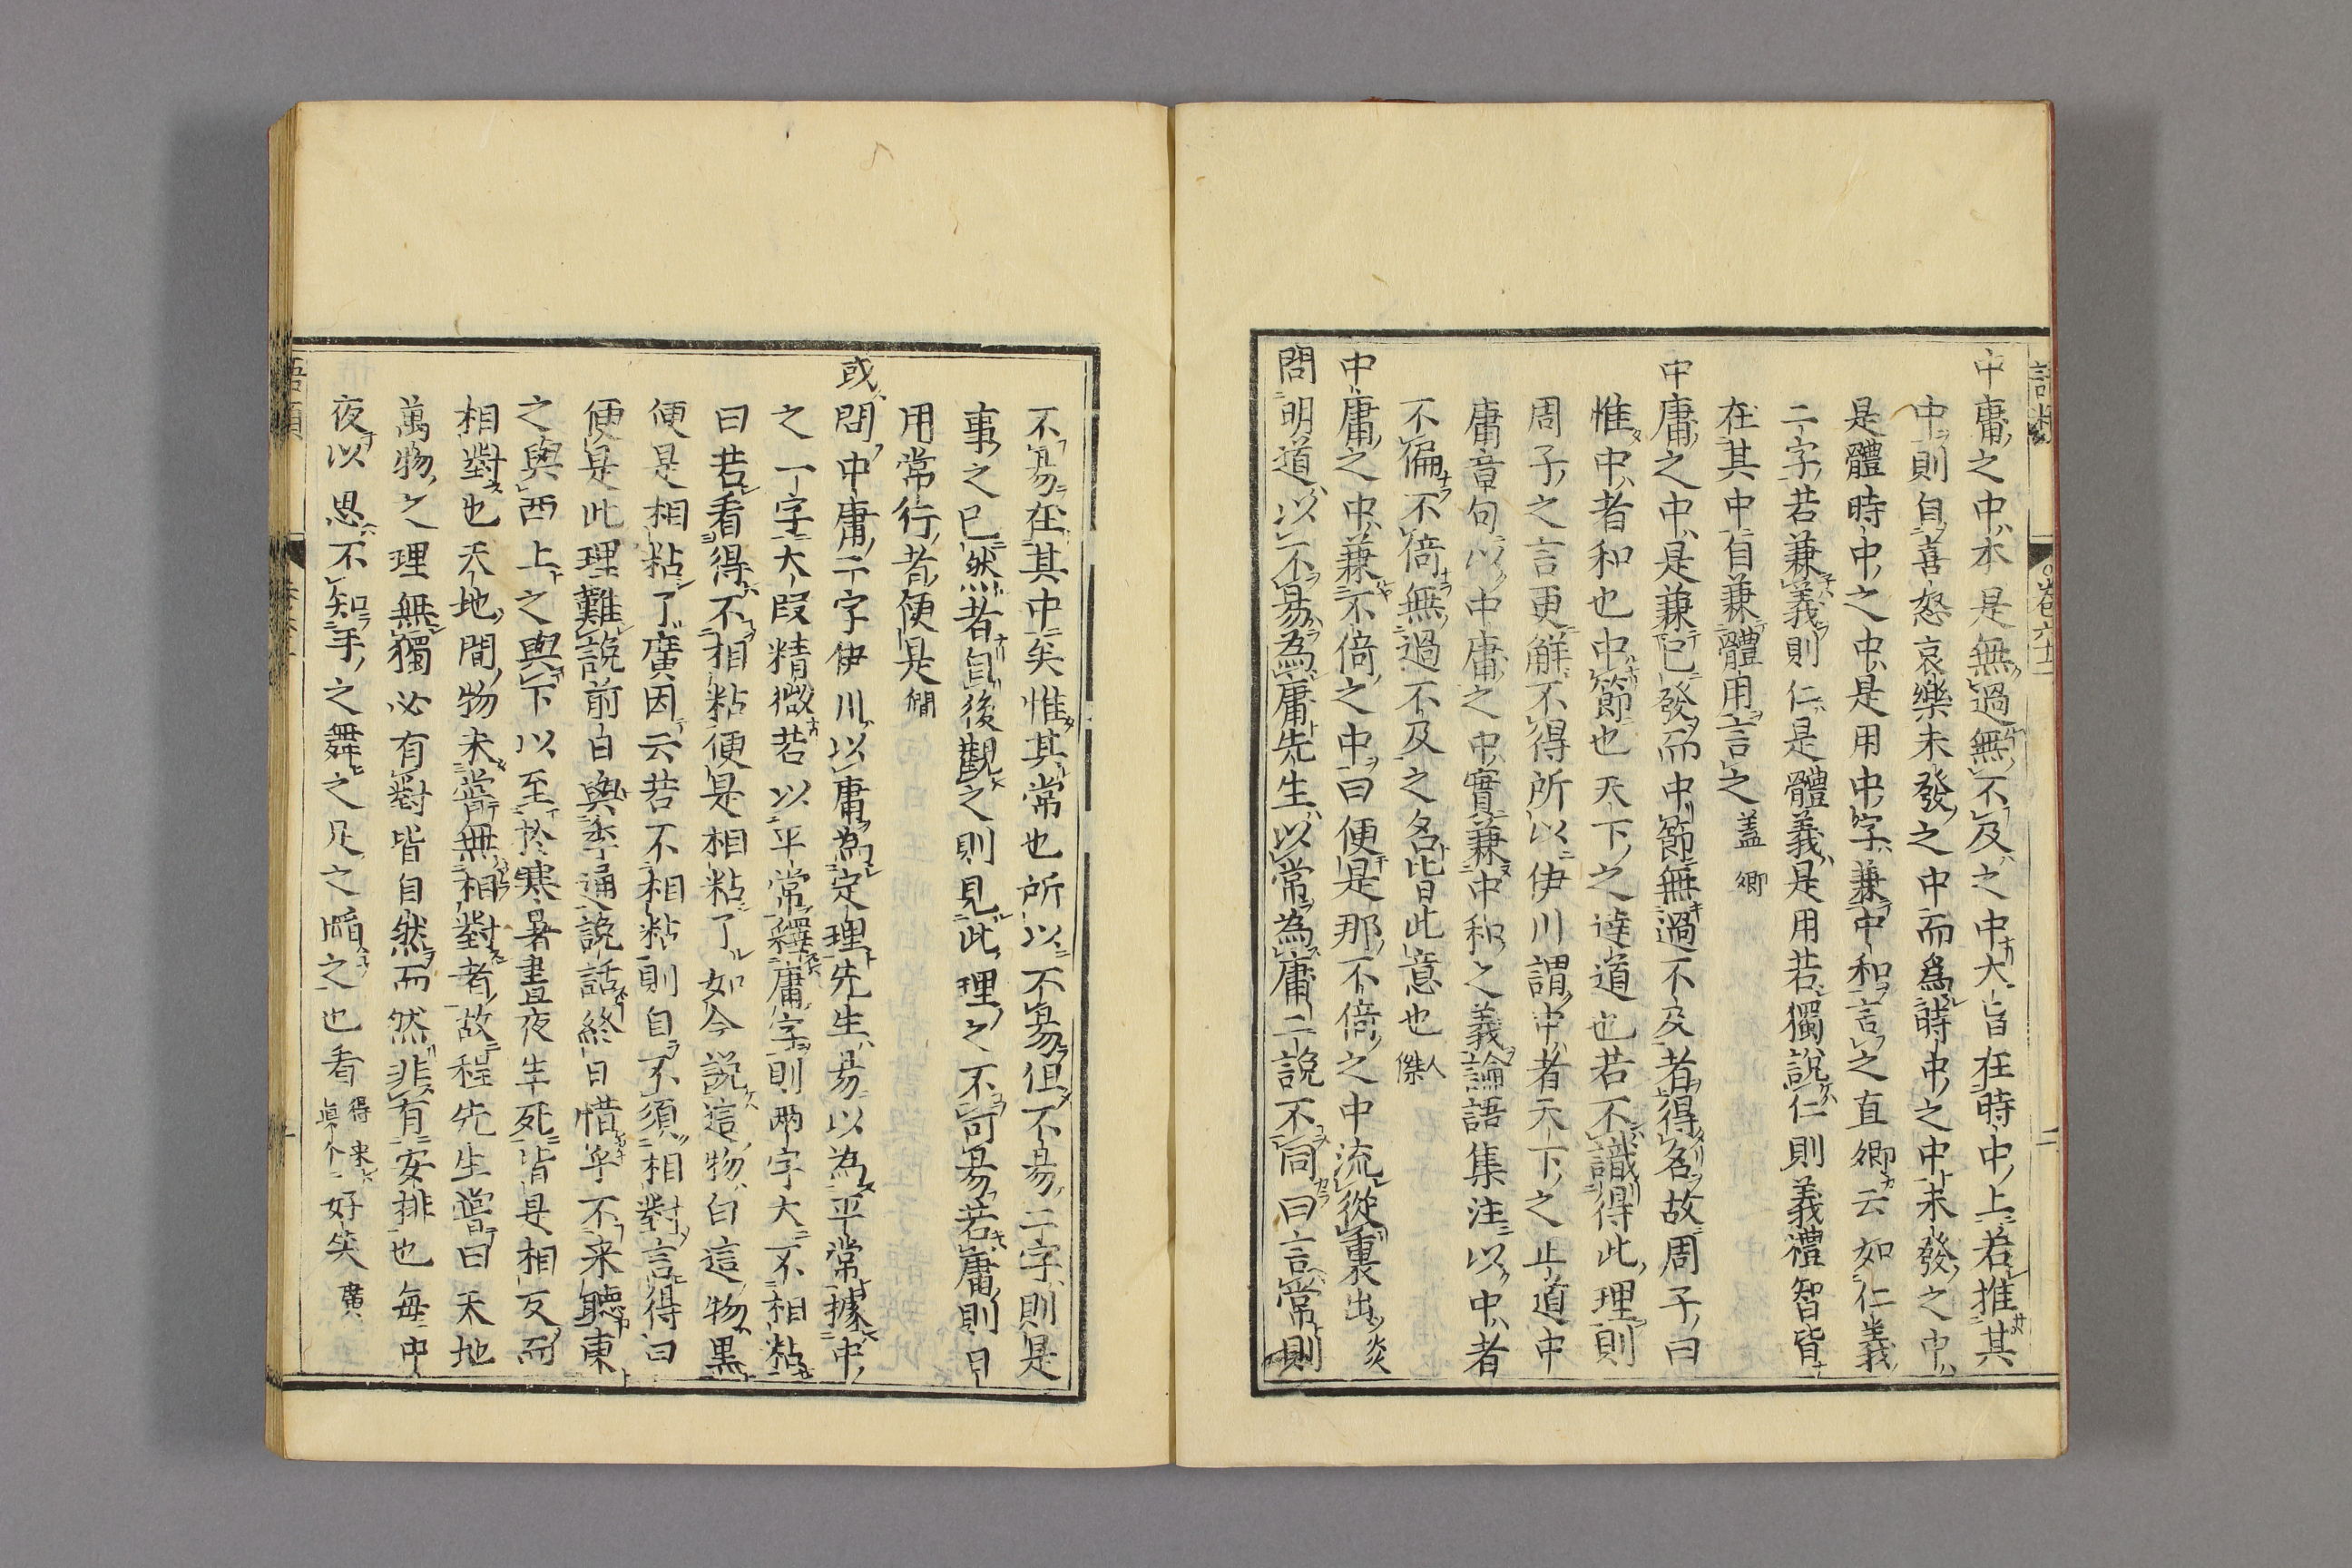 中庸之中本是無過無不及之中大旨在時中上若推其
中則自喜怒哀樂未發之中而爲時中之中未發之中
是體時中之中是用中字兼中和言之直卿云如仁義
二字若兼義則仁是體義是用若獨說仁則義禮智皆
在其中自兼體用言之蓋卿
中庸之中是兼已發而中節無過不及者得名故周子曰
惟中者和也中節也天下之達道也若不識得此理則
周子之言更解不得所以伊川謂中者天下之正道中
庸章句以中庸之中實兼中和之義論語集注以中者
不偏不倚無過不及之名皆此意也人傑
中庸之中兼不倚之中曰便是那不倚之中流從裏出炎
問明道以不易為庸先生以常為庸二說不同曰言常則
不易在其中矣惟其常也所以不易但不易二字則是
事之已然者自後觀之則見此理之不可易若庸則日
用常行者便是僩
或問中庸二字伊川以庸為定理先生易以為平常據中
之一字大段精微若以平常釋庸字則两字大不相粘
曰若看得不相粘便是相粘了如今說這物白這物黑
便是相粘了廣因云若不相粘則自不須相對言得曰
便是此理難說前日與季通說話終日惜乎不来聽東
之與西上之與下以至於寒暑晝夜生死皆是相反而
相對也天地間物未嘗無相對者故程先生嘗曰天地
萬物之理無獨必有對皆自然而然非有安排也每中
夜以思不知手之舞之足之蹈之也看得来真个好笑廣
語類
卷六十二
二